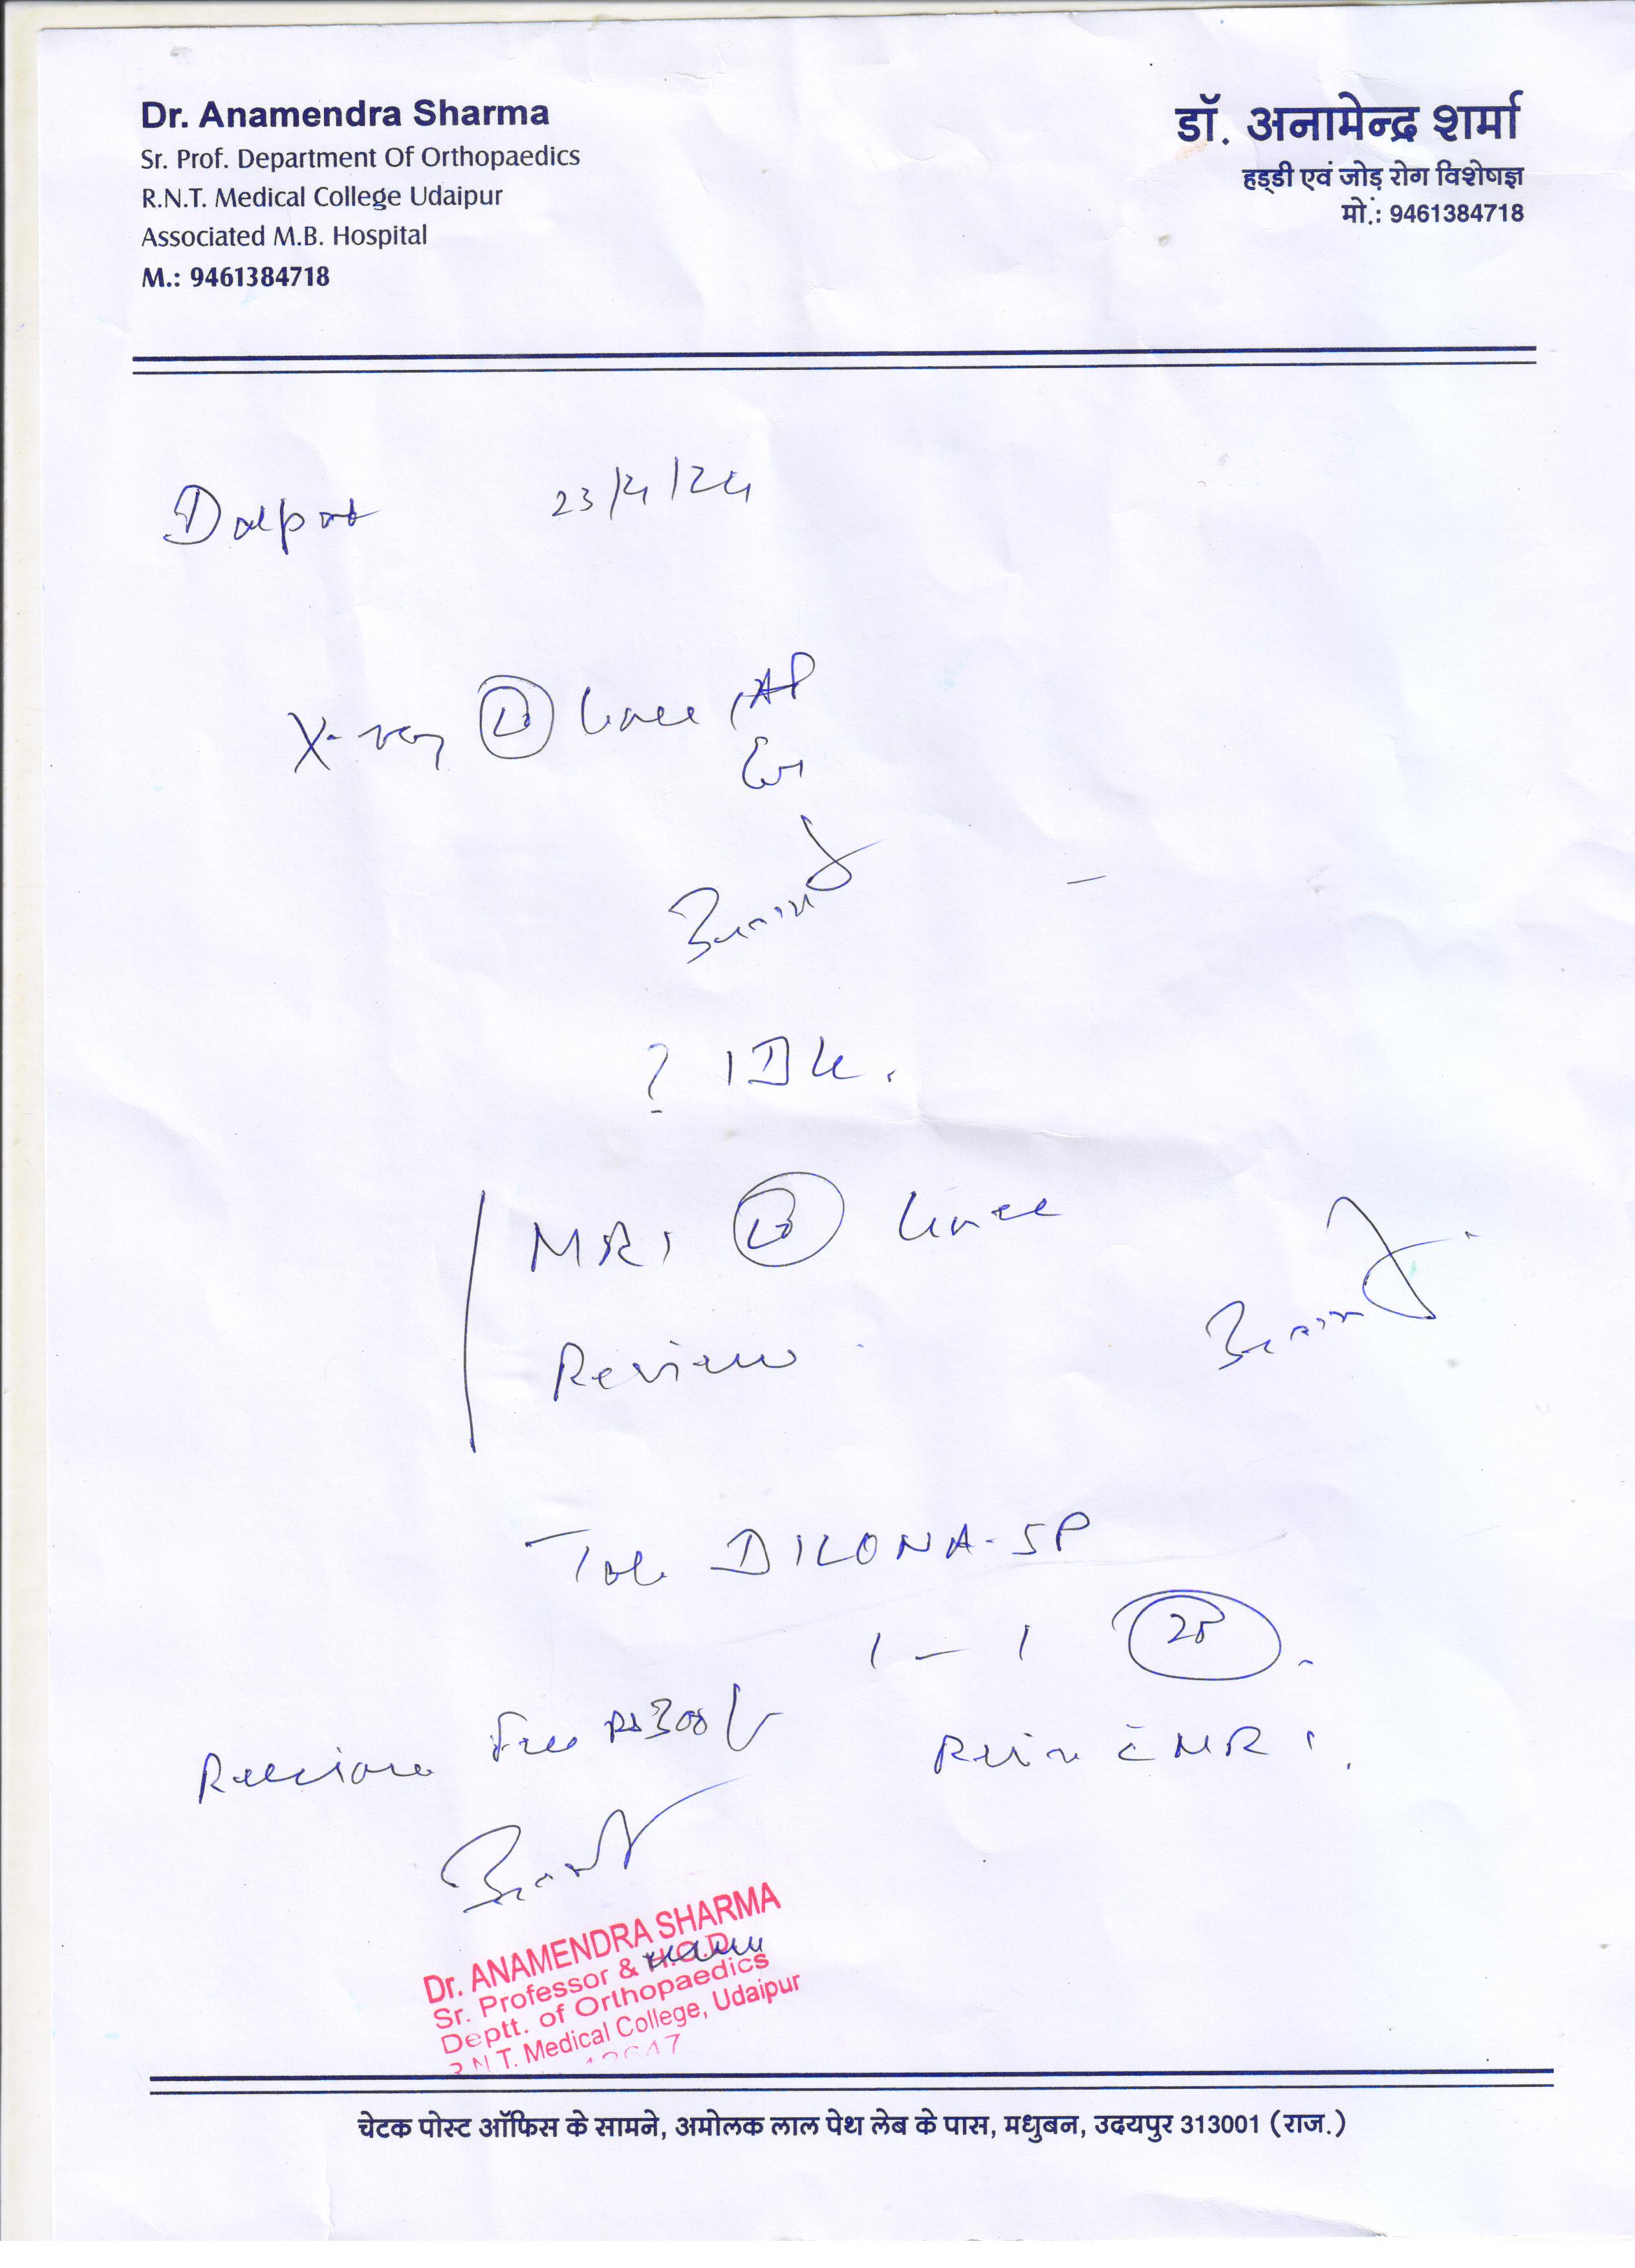 Dr. Anamendra Sharma
Sr. Prof. Department Of Orthopaedics
R.N.T. Medical College Udaipur
Associated M.B. Hospital
M.: 9461384718
डॉ. अनामेन्द्र शर्मा
हड्डी एवं जोड़ रोग विशेषज्ञ
मो.: 9461384718
Dalpat 23/4/24
X-ray knee AP
? IDK.
MRI knee
Review
Tab DILONA-SP
1 - 1
Fee Rs 300/-
MRI.
Dr. ANAMENDRA SHARMA
Sr. Professor & H.O.D.
Deptt. of Orthopaedics
R.N.T. Medical College, Udaipur
चेटक पोस्ट ऑफिस के सामने, अमोलक लाल पेथ लेब के पास, मधुबन, उदयपुर 313001 (राज.)